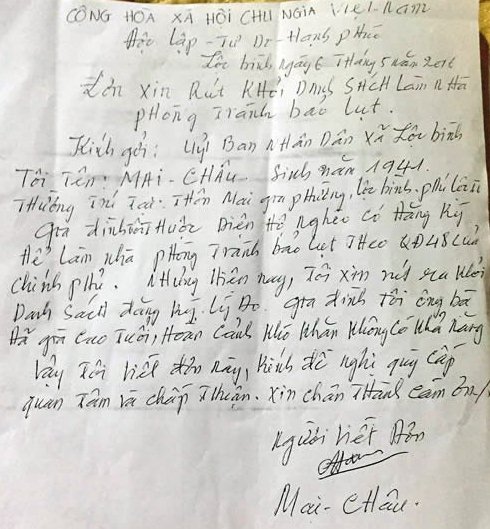 CÔNG HÒA XÃ HỘI CHU NGIA VIỆT NAM
Độc lập - Tự Do - Hạnh phúc
Lôc bình ngày 6 Tháng 5 năm 2016
Đơn xin Rút KHỎI DANH SÁCH LÀM NHÀ
phòng Tránh bảo lụt.
Kính gởi: Uỷ Ban Nhân Dân xã Lôc bình
Tôi Tên: MAI - CHÂU - Sinh năm 1941.
Thường Trú Tại: Thôn Mai gia phường, lôc bình, phú lôc
gia đình tôi thuộc Diện Hộ nghèo có Đăng Ký
Để Làm nhà phòng Tránh bảo lụt Theo QĐ48 của
chính phủ. Nhưng hiên nay, Tôi xin rút ra khỏi
Danh Sách đăng Ký. Lý do. gia đình Tôi ông bà
Đã già cao Tuổi, Hoàn cảnh Khó Khăn Không có Khả năng
Vậy Tôi viết đơn này, Kính đề nghị quý cấp
quan Tâm và chấp Thuận. Xin chân Thành cảm ơn/.
Người viết Đơn
Mai - Châu.